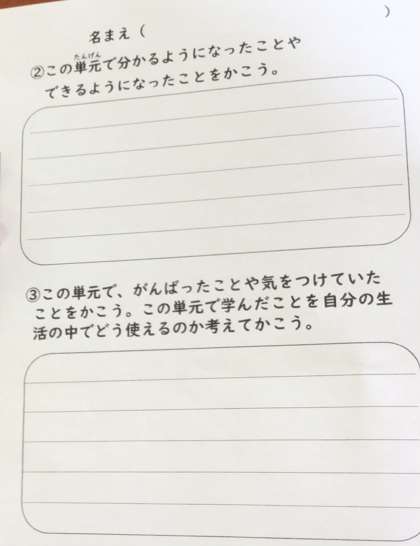 名まえ（　　　　　　　　　　）
②この単元で分かるようになったことや
できるようになったことをかこう。
③この単元で、がんばったことや気をつけていた
ことをかこう。この単元で学んだことを自分の生
活の中でどう使えるのか考えてかこう。